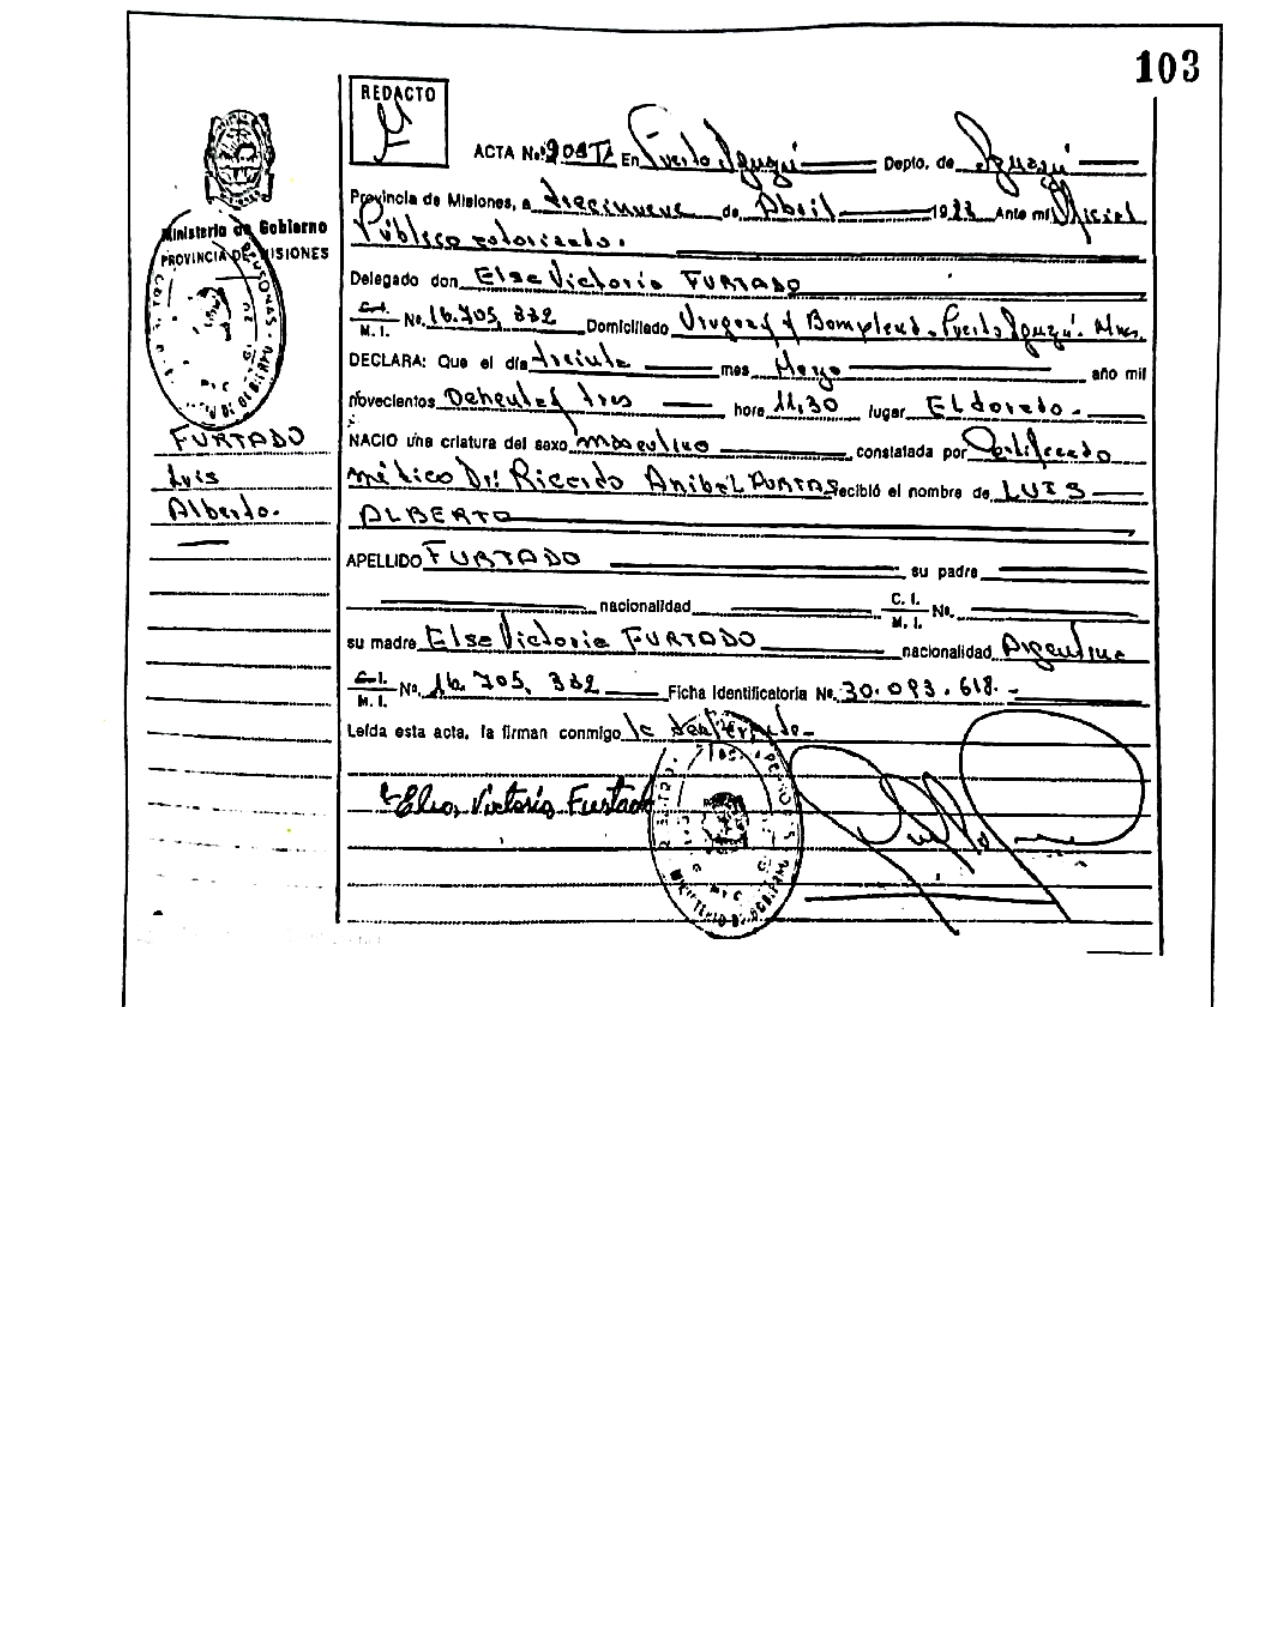 103
REDACTO
ACTA No. 90 En Puerto Iguazú Depto. de Iguazú
Ministerio de Gobierno
PROVINCIA DE MISIONES
Provincia de Misiones, a diecinueve de Abril 19 Ante mi Oficial
Público
Delegado don Elsa Victoria FURTADO
C.I. M.I. No. 16.705.332 Domiciliado Uruguay y Bompland. Puerto Iguazú. Mnes.
DECLARA: Que el día treinta mes Mayo año mil
novecientos Ochenta y tres hora 11,30 lugar Eldorado.
NACIO una criatura del sexo masculino constatada por Certificado
médico Dr. Ricardo Anibal recibió el nombre de LUIS
ALBERTO
FURTADO
Luis
Alberto.
APELLIDO FURTADO su padre
nacionalidad C. I. M. I. No.
su madre Elsa Victoria FURTADO nacionalidad Argentina
C.I. M. I. No. 16.705.332 Ficha Identificatoria No. 30.093.618.-
Leída esta acta, la firman conmigo la
Elsa Victoria Furtado